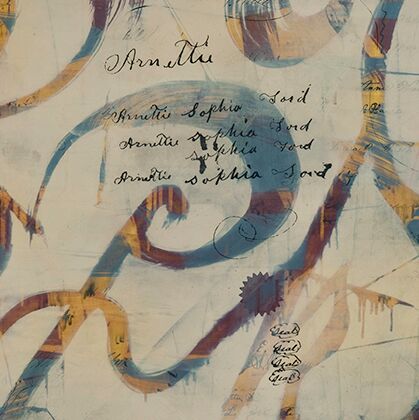 Arnettie
Arnettie Sophia Ford
Arnettie sophia Ford
sophia Ford
Arnettie sophia Ford
Seal
Seal
Seal
Seal